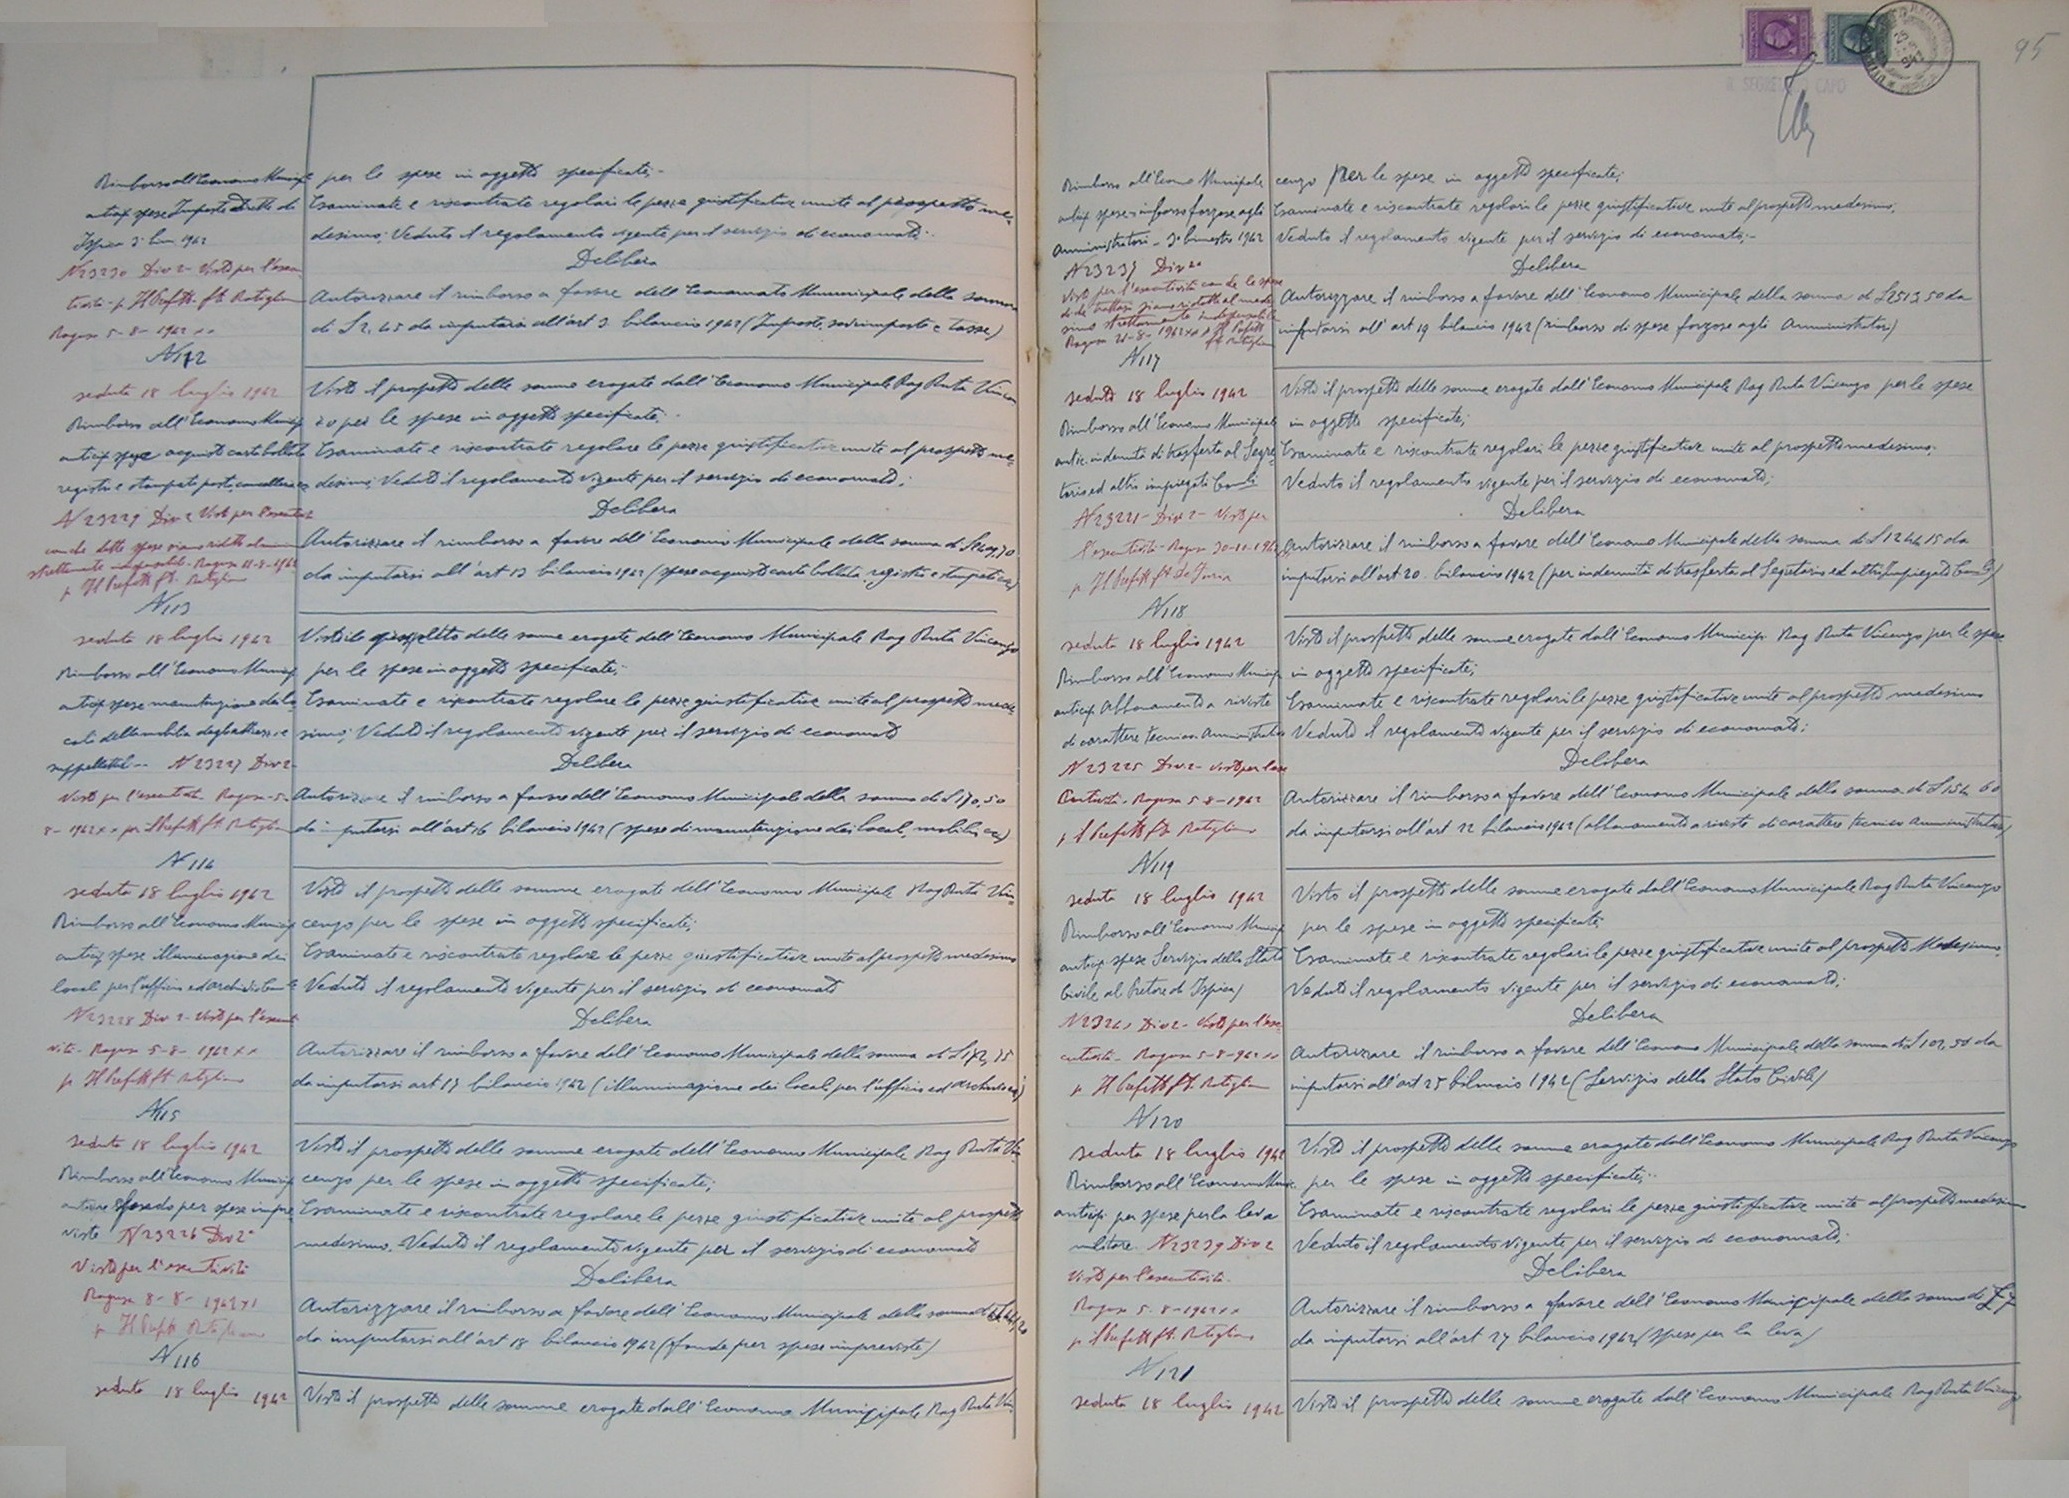 Rimborso all'Economo Municip
antic spese Imposte Dirette di
Ispica 3° bim 1942
N 23230 Div 2 - Visto per l'esecu
tività - p Il Prefetto ft Ratiglia
Ragusa 5-8-1942 xx
N 112
seduta 18 luglio 1942
Rimborso all'Economo Municip
antic spese acquisto carta bollata
registri e stampati post, cancelleria ecc
N 23229 Div 2 Visto per l'esecut
strettamente Ragusa 21-8-1942
p Il Prefetto ft. Ratiglia
N 113
seduta 18 luglio 1942
Rimborso all'Economo Municip
antic spese manutenzione dei lo
cali della mobilia degli attrezzi e
suppellettili -- N 23227 Div 2-
Visto per l'esecutività Ragusa-5-
8-1942 xx p Il Prefetto ft Ratiglia
N 114
seduta 18 luglio 1942
Rimborso all'Economo Municip
antic spese illuminazione dei
locali per l'ufficio ed archivi
N 23228 Div 2 - Visto per l'esecuti
vità - Ragusa 5-8-1942 xx
p Il Prefetto ft Ratiglia
N 115
seduta 18 luglio 1942
Rimborso all'Economo Municip
fondo per spese impre
viste N 23226 Div 2°
Visto per l'esecutività
Ragusa 8-8-1942
p Il Prefetto Ratiglia
N 116
seduta 18 luglio 1942
per le spese in oggetto specificate;-
Esaminate e riscontrate regolari le pezze giustificative unite al prospetto me-
desimo; Veduto il regolamento vigente per il servizio di economato;-
Delibera
Autorizzare il rimborso a favore dell'Economato Municipale della somma
di L 2,45 da imputarsi all'art 3 bilancio 1942 (Imposte, sovrimposte e tasse)
Visto il prospetto delle somme erogate dall'Economo Municipale Rag Ruta Vincen
zo per le spese in oggetto specificate;-
Esaminate e riscontrate regolare le pezze giustificative unite al prospetto me-
desimo; Veduto il regolamento vigente per il servizio di economato;
Delibera
Autorizzare il rimborso a favore dell'Economo Municipale della somma di
da imputarsi all'art 13 bilancio 1942 (spese acquisto carta bollata, registri e stampati ecc)
Visto il prospetto delle somme erogate dall'Economo Municipale Rag Ruta Vincenzo
per le spese in oggetto specificate;-
Esaminate e riscontrate regolare le pezze giustificative unite al prospetto mede-
simo; Veduto il regolamento vigente per il servizio di economato
Delibera
Autorizzare il rimborso a favore dell'Economo Municipale della somma di L 170,50
da imputarsi all'art 16 bilancio 1942 (spese di manutenzione dei locali, mobili ecc)
Visto il prospetto delle somme erogate dall'Economo Municipale Rag Ruta Vin-
cenzo per le spese in oggetto specificate;
Esaminate e riscontrate regolare le pezze giustificative unite al prospetto medesimo
Veduto il regolamento vigente per il servizio di economato
Delibera
Autorizzare il rimborso a favore dell'Economo Municipale della somma di
da imputarsi art 17 bilancio 1942 (illuminazione dei locali per l'ufficio ed archivi
Visto il prospetto delle somme erogate dall'Economo Municipale Rag Ruta Vin-
cenzo per le spese in oggetto specificate;
Esaminate e riscontrate regolare le pezze giustificative unite al prospetto
medesimo. Veduto il regolamento vigente per il servizio di economato
Delibera
Autorizzare il rimborso a favore dell'Economo Municipale della somma
da imputarsi all'art 18 bilancio 1942 (fondo per spese impreviste)
Visto il prospetto delle somme erogate dall'Economo Municipale Rag Ruta Vin-
95
IL SEGRETARIO CAPO
Rimborso all'Econo Municipale
antic spese rimborso forzose agli
Amministratori - 3° bimestre 1942
N 23235 Div 2a
Visto per l'esecutività con che le spese
strettamente indispensabile
Ragusa 21-8-1942 xx p Il Prefetto
ft Ratiglia
N 117
seduta 18 luglio 1942
Rimborso all'Economo Municipale
antic. indennità di trasferta al Segre-
tario ed altri impiegati Com.li
N 23221 - Div 2 - Visto per
l'esecutività - Ragusa 30-10-1942
p Il Prefetto ft
N 118
seduta 18 luglio 1942
Rimborso all'Economo Municip
antic Abbonamento a riviste
di carattere tecnico Amministrativo
N 23225 Div 2 - Visto per l'ese
cutività - Ragusa 5-8-1942
p Il Prefetto ft Ratiglia
N 119
seduta 18 luglio 1942
Rimborso all'Economo Municip
antic spese Servizio dello Stato
Civile al Pretore di Ispica
Div 2 - Visto per l'ese-
cutività - Ragusa 5-8-942 xx
p Il Prefetto ft. Ratiglia
N 120
seduta 18 luglio 1942
Rimborso all'Economo Munic.
antic per spese per la leva
militare. N 23239 Div 2
Visto per l'esecutività.
Ragusa 5-8-1942 xx
p Il Prefetto ft Ratiglia
N 121
seduta 18 luglio 1942
cenzo per le spese in oggetto specificate;
Esaminate e riscontrate regolari le pezze giustificative unite al prospetto medesimo;
Veduto il regolamento vigente per il servizio di economato;-
Delibera
Autorizzare il rimborso a favore dell'Economo Municipale della somma di L 2513,50 da
imputarsi all'art 19 bilancio 1942 (rimborso di spese forzose agli Amministratori)
Visto il prospetto delle somme erogate dall'Economo Municipale Rag Ruta Vincenzo per le spese
in oggetto specificate;
Esaminate e riscontrate regolari le pezze giustificative unite al prospetto medesimo.
Veduto il regolamento vigente per il servizio di economato;
Delibera
Autorizzare il rimborso a favore dell'Economo Municipale della somma di L 1244,15 da
imputarsi all'art 20 bilancio 1942 (per indennità di trasferta al Segretario ed altri Impiegati Com.li)
Visto il prospetto delle somme erogate dall'Economo Municip. Rag Ruta Vincenzo per le spese
in oggetto specificate;
Esaminate e riscontrate regolari le pezze giustificative unite al prospetto medesimo
Veduto il regolamento vigente per il servizio di economato;
Delibera
Autorizzare il rimborso a favore dell'Economo Municipale della somma di L 154 60
da imputarsi all'art 22 bilancio 1942 (abbonamenti a riviste di carattere tecnico Amministrativo)
Visto il prospetto delle somme erogate dall'Economo Municipale Rag Ruta Vincenzo
per le spese in oggetto specificate;
Esaminate e riscontrate regolari le pezze giustificative unite al prospetto Medesimo.
Veduto il regolamento vigente per il servizio di economato;
Delibera
Autorizzare il rimborso a favore dell'Economo Municipale della somma di L 102,50 da
imputarsi all'art 25 bilancio 1942 (Servizio dello Stato Civile)
Visto il prospetto delle somme erogate dall'Economo Municipale Rag Ruta Vincenzo
per le spese in oggetto specificate;-
Esaminate e riscontrate regolari le pezze giustificative unite al prospetto medesimo
Veduto il regolamento vigente per il servizio di economato;
Delibera
Autorizzare il rimborso a favore dell'Economo Municipale della somma di
da imputarsi all'art 27 bilancio 1942 (spese per la leva)
Visto il prospetto delle somme erogate dall'Economo Municipale Rag Ruta Vincenzo